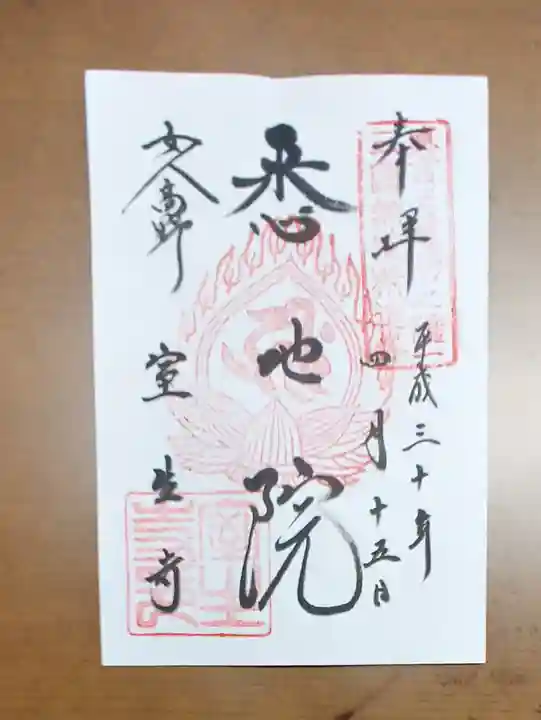 奉拝
平成三十年
四月十五日
悉地院
女人高野
室生寺